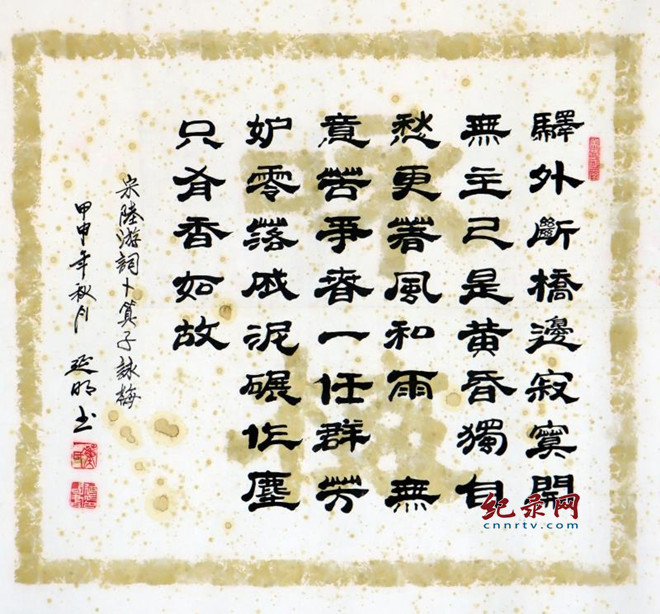 驛外斷橋邊寂寞開
無主已是黃昏獨自
愁更著風和雨 無
意苦爭春一任群芳
妒零落成泥碾作塵
只有香如故
宋陸游詞卜算子詠梅
甲申年秋月 延明书
纪录网
cnnrtv.com